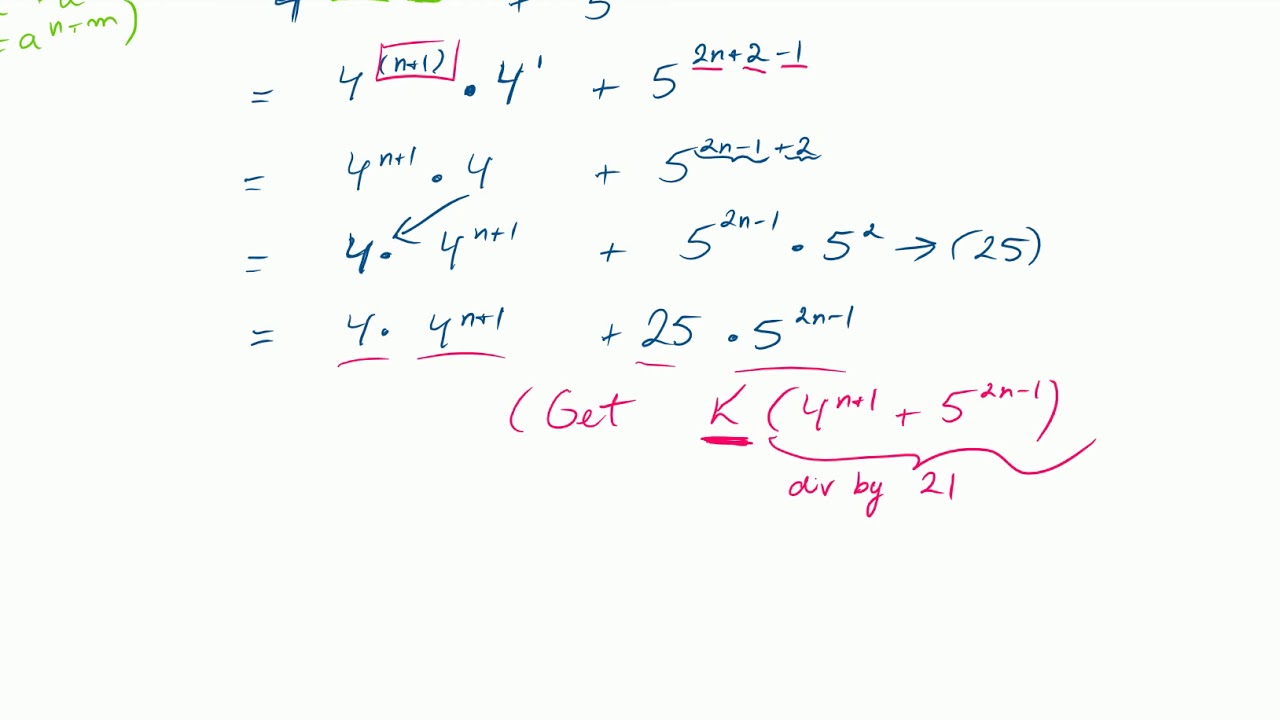 = a^{n+m})
= 4^{(n+1)} · 4^1 + 5^{2n+2-1}
= 4^{n+1} · 4 + 5^{2n-1+2}
= 4 · 4^{n+1} + 5^{2n-1} · 5^2 → (25)
= 4 · 4^{n+1} + 25 · 5^{2n-1}
(Get K (4^{n+1} + 5^{2n-1})
div by 21